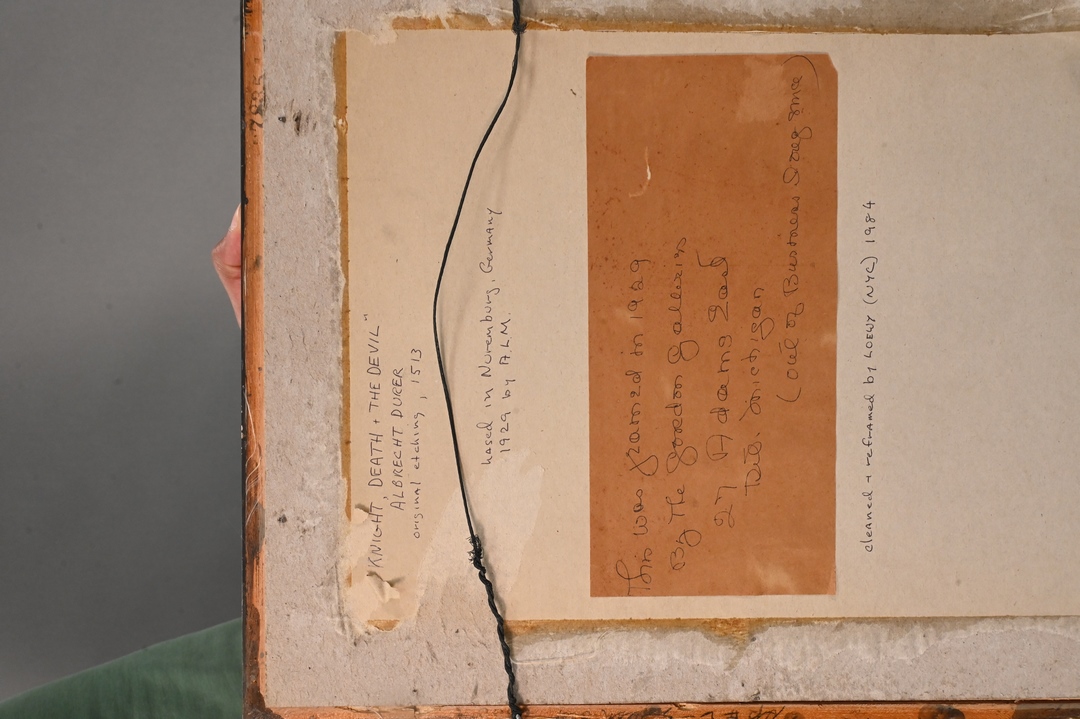 "KNIGHT, DEATH + THE DEVIL"
ALBRECHT DURER
original etching, 1513
hased in Nuremburg, Germany
1929 by A.L.M.
This was framed in 1929
By The Gordon Galleries
27 Adams East
Det. Michigan
(out of Business Long since)
cleaned + reframed by LOEWY (NYC) 1984